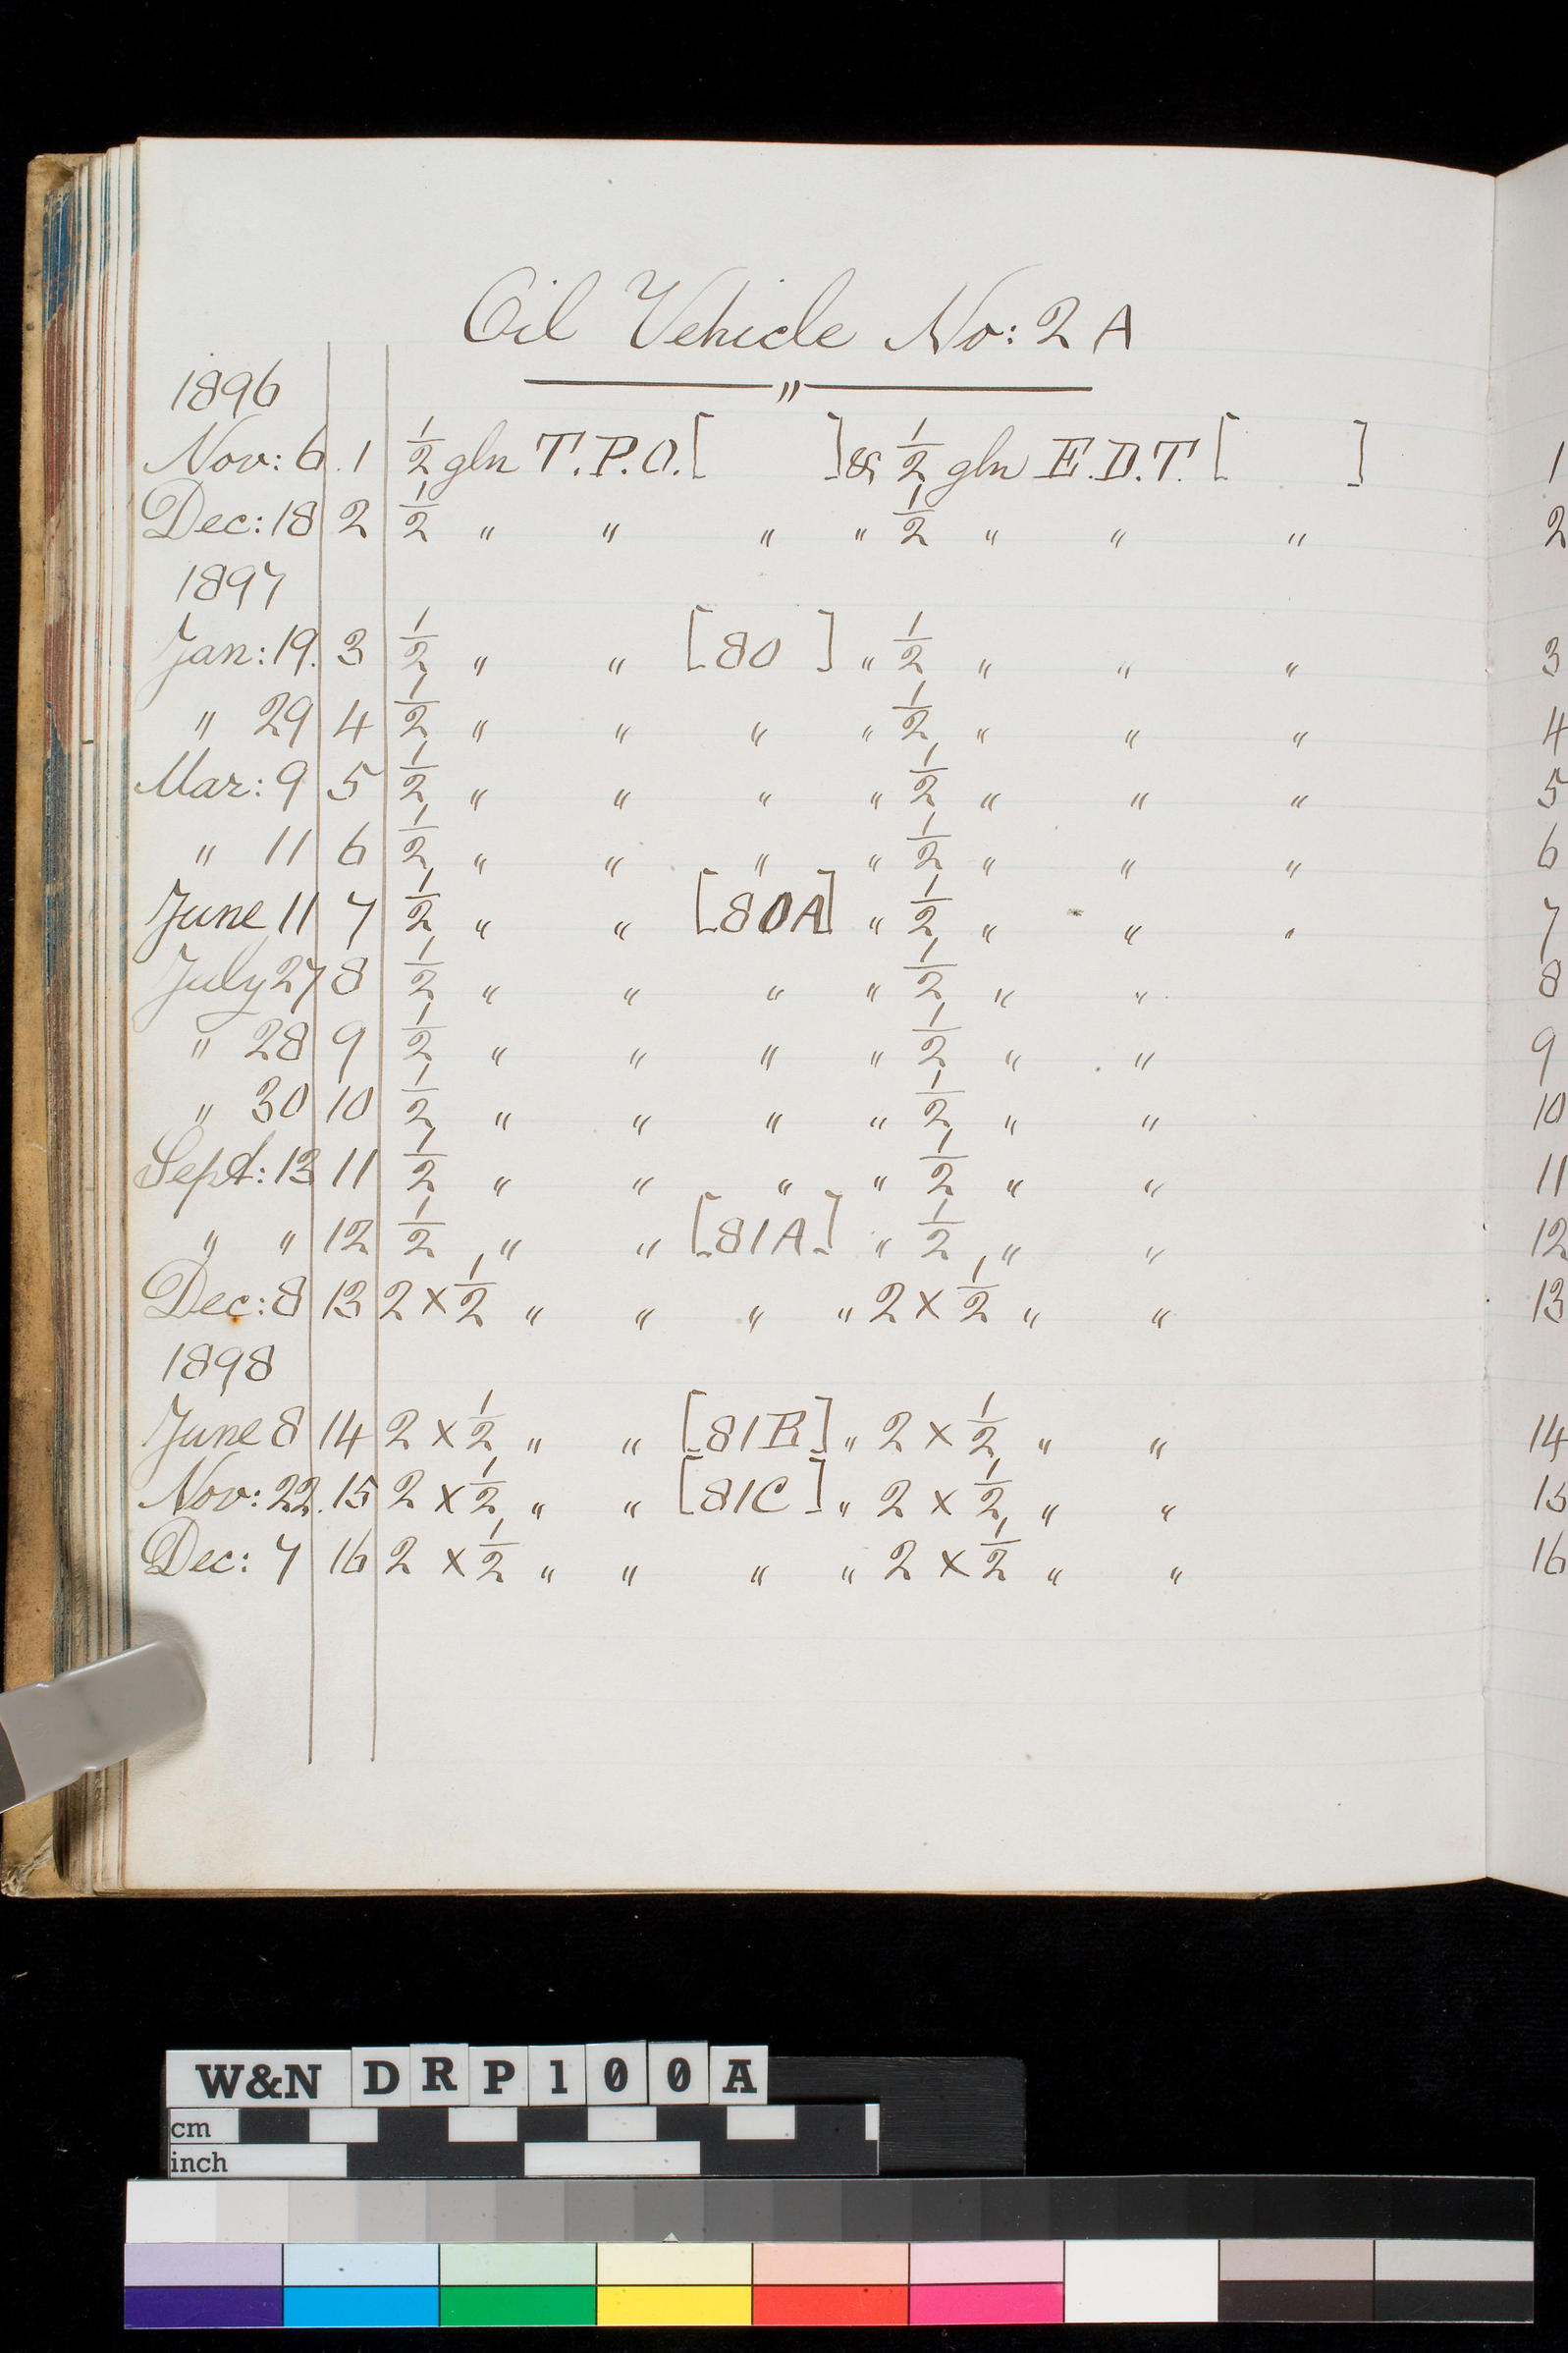 Oil Vehicle No: 2 A
"
1896
Nov: 6. 1 ½ gln T.P.O. [ ] & ½ gln E.D.T. [ ] 1
Dec: 18 2 ½ " " " " ½ " " " 2
1897
Jan: 19. 3 ½ " " [80 ] " ½ " " " 3
" 29 4 ½ " " " " ½ " " " 4
Mar: 9 5 ½ " " " " ½ " " " 5
" 11 6 ½ " " " " ½ " " " 6
June 11 7 ½ " " [80A] " ½ " " " 7
July 27 8 ½ " " " " ½ " " 8
" 28 9 ½ " " " " ½ " " 9
" 30 10 ½ " " " " ½ " " 10
Sept: 13 11 ½ " " " " ½ " " 11
" " 12 ½ " " [81A] " ½ " " 12
Dec: 8 13 2 × ½ " " " " 2 × ½ " " 13
1898
June 8 14 2 × ½ " " [81B] " 2 × ½ " " 14
Nov: 22. 15 2 × ½ " " [81C] " 2 × ½ " " 15
Dec: 7 16 2 × ½ " " " " 2 × ½ " " 16
W&N DRP100A
cm
inch